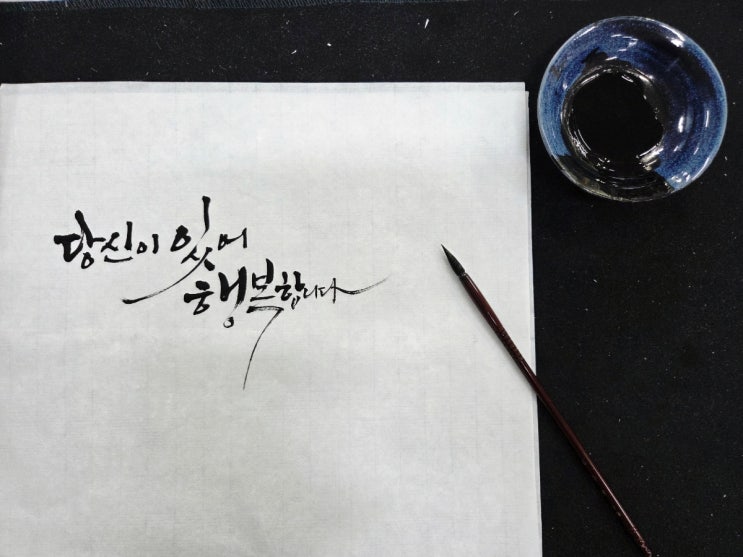 당신이 있어
행복합니다